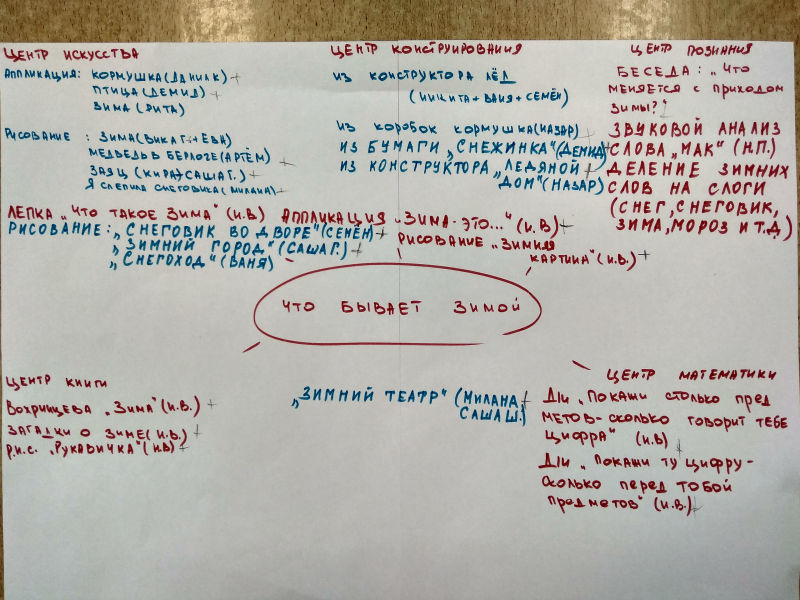 ЦЕНТР ИСКУССТВА
АППЛИКАЦИЯ: КОРМУШКА (ДАНИЛ К) +
ПТИЦА (ДЕМИД) +
ЗИМА (РИТА)
РИСОВАНИЕ : ЗИМА (ВИКА Г. + ЕВА)
МЕДВЕДЬ В БЕРЛОГЕ (АРТЁМ) +
ЗАЯЦ (КИРА + САША Г.) +
Я СЛЕПИЛА СНЕГОВИКА (МИЛАНА) +
ЛЕПКА „ЧТО ТАКОЕ ЗИМА" (И.В)
РИСОВАНИЕ: „СНЕГОВИК ВО ДВОРЕ" (СЕМЁН) +
„ЗИМНИЙ ГОРОД" (САША Г.) +
„СНЕГОХОД" (ВАНЯ)
ЦЕНТР КОНСТРУИРОВАНИЯ
ИЗ КОНСТРУКТОРА ЛЁД
(НИКИТА + ВАНЯ + СЕМЁН)
ИЗ КОРОБОК КОРМУШКА (НАЗАР) +
ИЗ БУМАГИ „СНЕЖИНКА" (ДЕМИД) +
ИЗ КОНСТРУКТОРА „ЛЕДЯНОЙ +
ДОМ" (НАЗАР)
АППЛИКАЦИЯ „ЗИМА - ЭТО..." (И.В) +
РИСОВАНИЕ „ЗИМНЯЯ
КАРТИНА" (И.В.) +
ЦЕНТР ПОЗНАНИЯ
БЕСЕДА: „ЧТО
МЕНЯЕТСЯ С ПРИХОДОМ
ЗИМЫ?"
ЗВУКОВОЙ АНАЛИЗ
СЛОВА „МАК" (Н.П.)
ДЕЛЕНИЕ ЗИМНИХ
СЛОВ НА СЛОГИ
(СНЕГ, СНЕГОВИК,
ЗИМА, МОРОЗ И Т.Д)
ЧТО БЫВАЕТ ЗИМОЙ
ЦЕНТР КНИГИ
ВОХРИНЦЕВА „ЗИМА" (И.В.) +
ЗАГАДКИ О ЗИМЕ (И.В.) +
Р.Н.С. „РУКАВИЧКА" (И.В) +
„ЗИМНИЙ ТЕАТР" (МИЛАНА +
САША Ш.)
ЦЕНТР МАТЕМАТИКИ
Д/И „ПОКАЖИ СТОЛЬКО ПРЕД
МЕТОВ - СКОЛЬКО ГОВОРИТ ТЕБЕ
ЦИФРА" (И.В) +
Д/И „ПОКАЖИ ТУ ЦИФРУ -
СКОЛЬКО ПЕРЕД ТОБОЙ
ПРЕДМЕТОВ" (И.В.) +